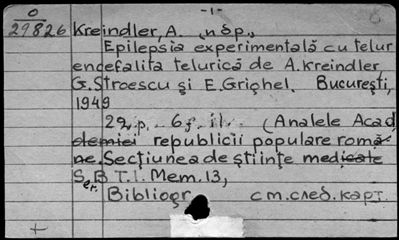 0 -1- 8
29826 Kreindler, A. ş.a.
Epilepsia experimentală cu telur
encefalita telurică de A. Kreindler,
G. Stroescu şi E. Grighel. Bucureşti,
1949
22 p. 6 f. il. (Analele Acad
demiei republicii populare româ-
ne. Secţiunea de ştiinţe medicale
Ser. B T.I. Mem. 13,
Bibliogr. см. след. карт.
+